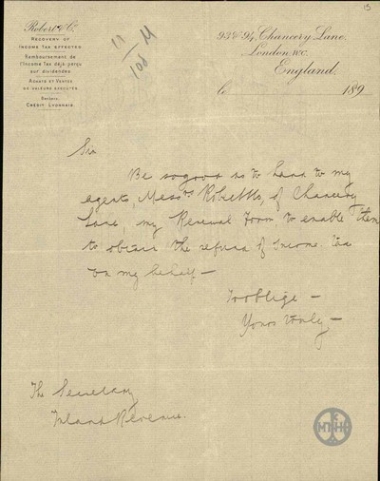 Robert & Co.
Recovery of
Income Tax effected
Remboursement de
l'Income Tax déjà perçu
sur dividendes
Achats et Ventes
de valeurs exécutés
Crédit Lyonnais
93 & 94, Chancery Lane,
London, W.C.
England.
le 189
Sir
Be so good as to hand to my
agents, Messrs Robert & Co, of Chancery
Lane, my Renewal Form to enable them
to obtain the refund of Income Tax
on my behalf —
To oblige —
Yours truly —
The Secretary
Inland Revenue.